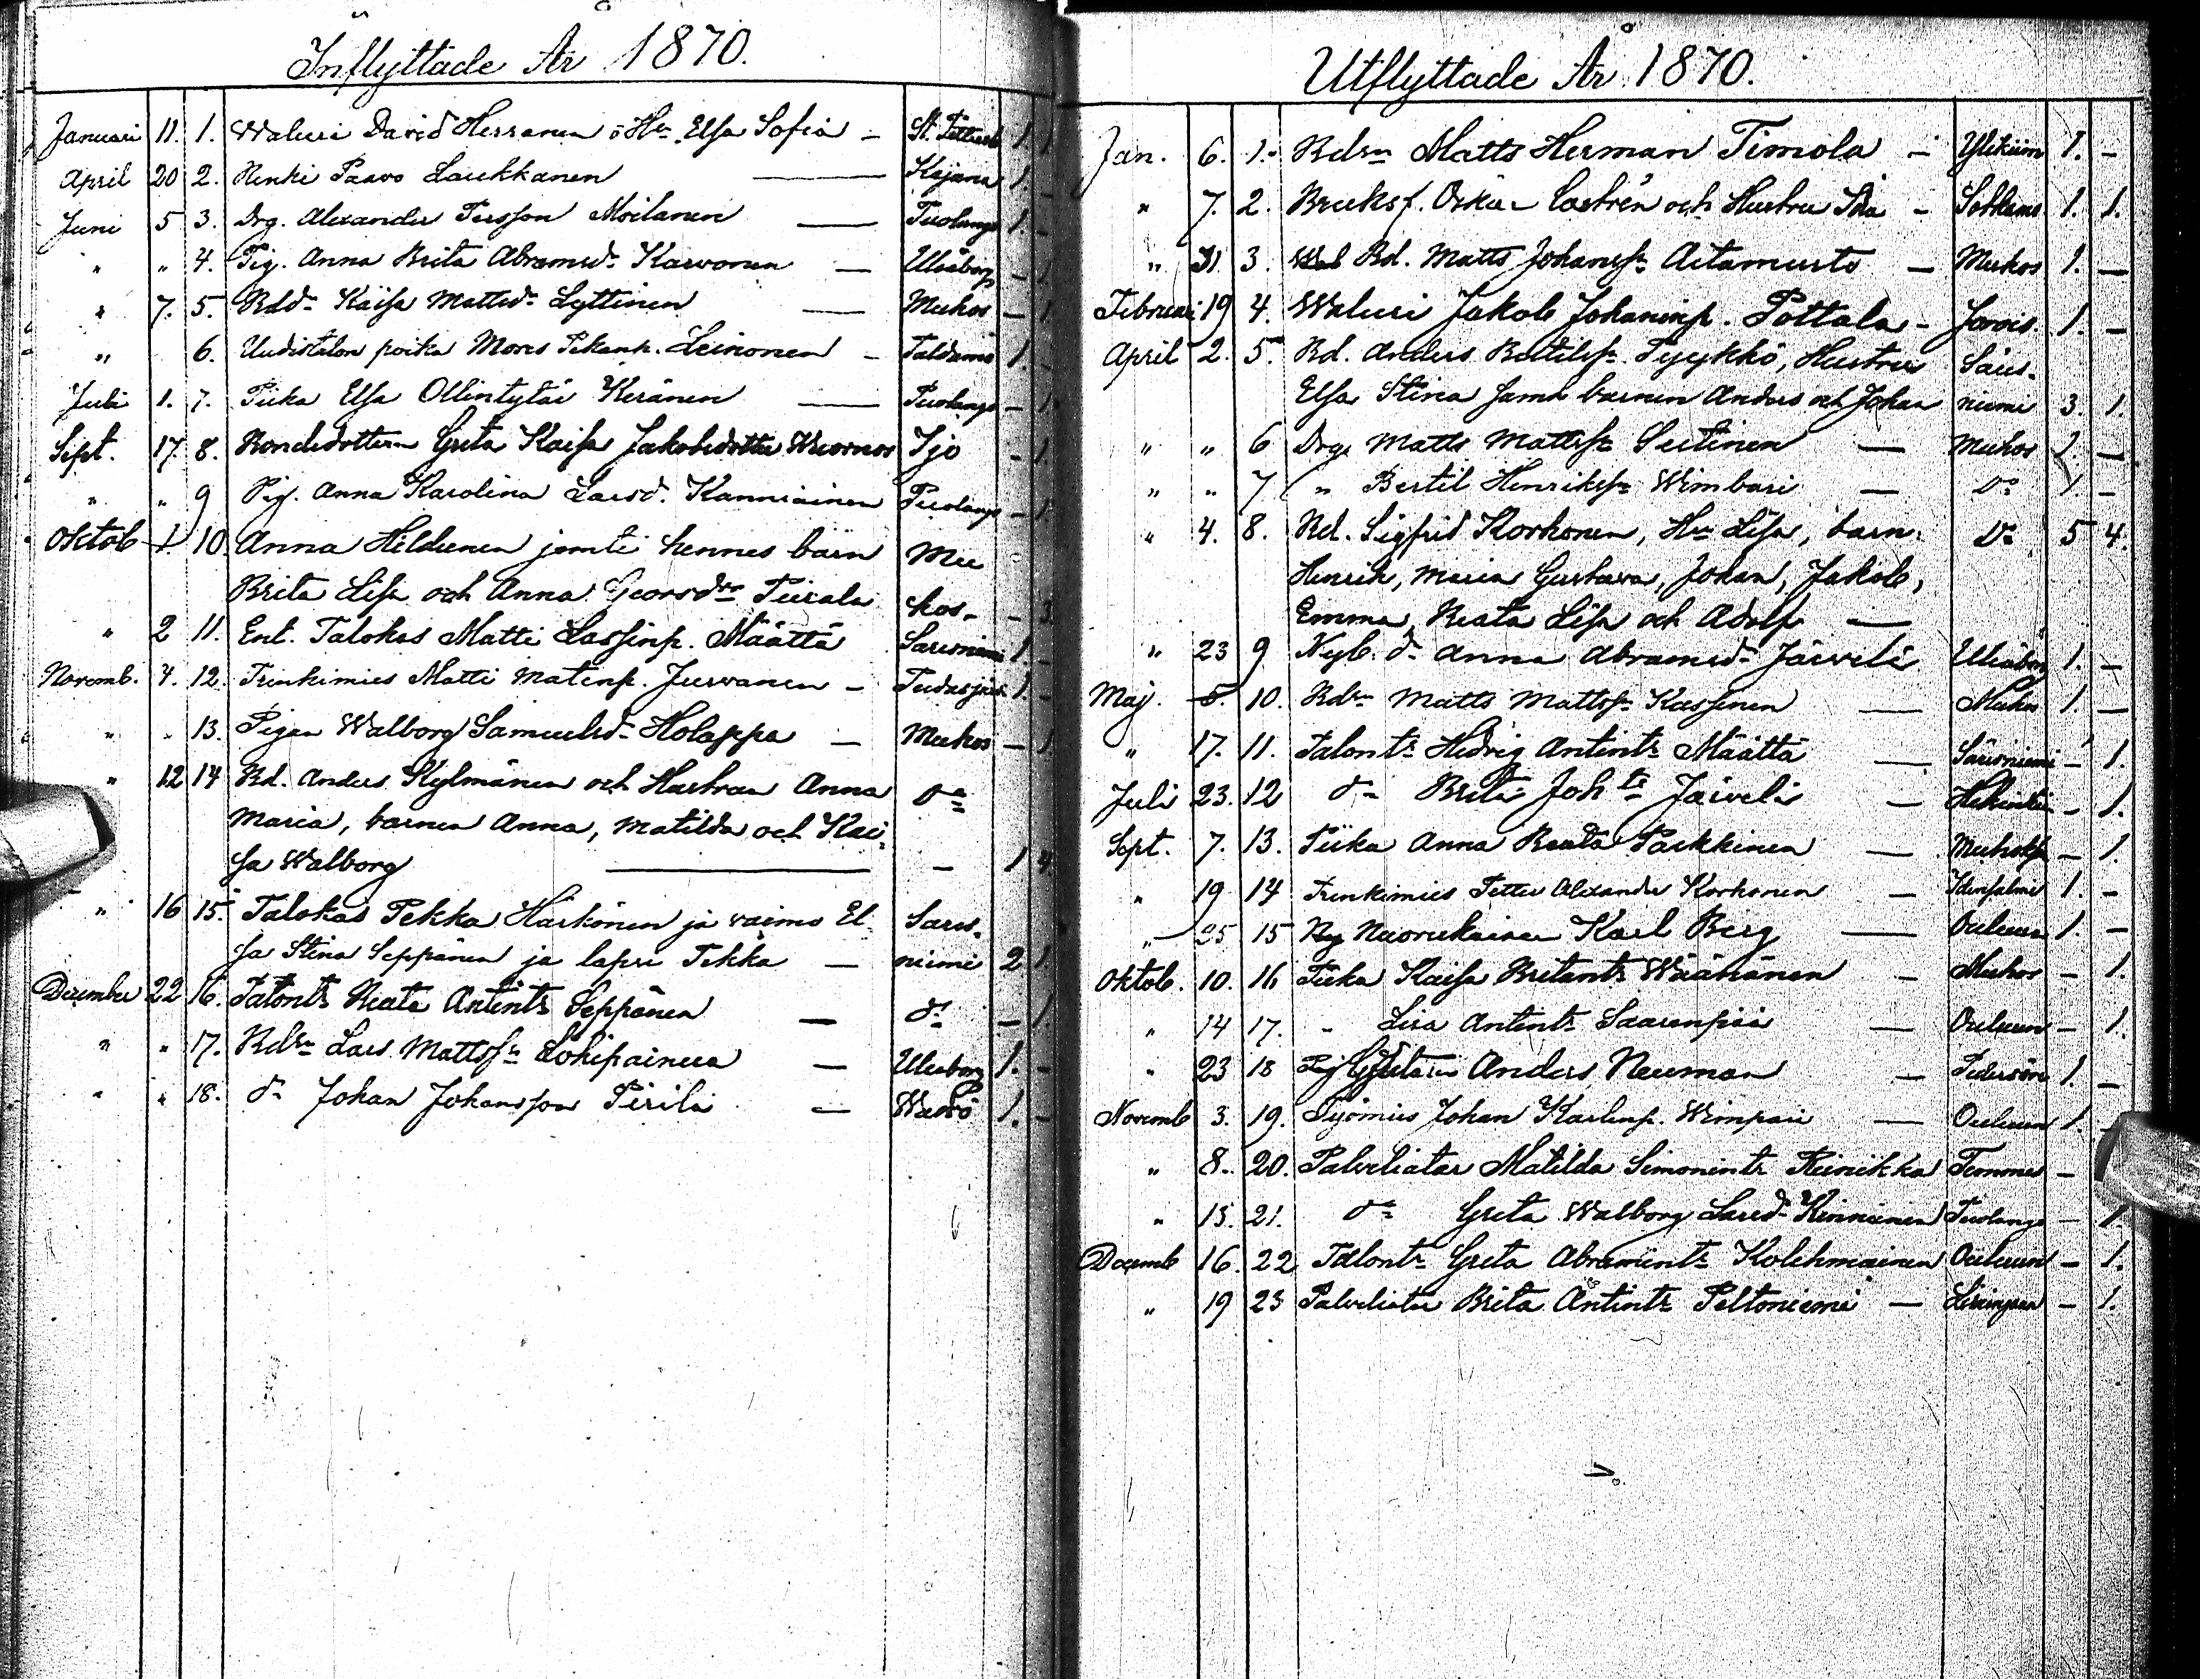 Inflyttade År 1870.
Januari 11. 1. Waluri David Herranen o Hu Elsa Sofia – St. Petersb 1 1
April 20 2. Renki Paavo Laukkanen — Kajana 1. –
Juni 5 3. Drg. Alexander Persson Moilanen — Puolango 1. –
" " 4. Pig. Anna Brita Abramsdr Karvonen — Uleåborg – 1
" 7. 5. Bddr Kaisa Mattsdr Lyttinen — Muhos – 1.
" 6. Uudistalon poika Moses Pekanp. Leinonen – 1. –
Juli 1. 7. Piika Elsa Ollintytär Keränen — Puolango – 1.
Sept. 17 8. Bondedottern Greta Kaisa Jakobsdotter Ijo – 1.
" " 9 Pig. Anna Karolina Larsd. Kanniainen Puolango – 1.
Oktob 1 10. Anna Hildunen jemte hennes barn Mu
Brita Lisa och Anna Georsdrr hos. – 3
" 2 11. Ent. Talokas Matti Lassinp. Määttä Säresniemi 1. –
Novemb. 4. 12. Trenkimies Matti Matinp. Jurvanen – Pudasjärvi 1. –
" " 13. Pigan Walborg Samuelsd. Holappa — Muhos – 1
" 12 14 Bd. Anders Kylmänen och Hustrun Anna do
Maria, barnen Anna, Matilda och Kai-
sa Walborg — – 1 4
" 16 15. Talokas Pekka Härkönen ja vaimo El- Säres-
sa Stina Seppänen ja lapsi Pekka — niemi 2 1.
December 22 16. Talontr Beata Antintr Seppänen — do – 1.
" " 17. Bdsn Lars Mattssn — Uleaborg 1. –
" " 18. do Johan Johansson Pirilä — 1. –
Utflyttade År 1870.
Jan. 6. 1. Bdsn Matts Herman Timola – Ylikiim 1. –
" 7. 2. Bruksf. Oskar Castrén och Hustru Ida – Sotkamo 1. 1.
" 31 3. Bd. Matts Johanss. Aitamurto — Muhos 1. –
Februari 19 4. Waluri Jakob Johaninp. Pottala – 1. –
April 2. 5. Bd. Anders Bertilss. Pyykkö, Hustru Säres-
Elsa Stina samt barnen Anders och Johan niemi 3. 1.
" " 6 Drg. Matts Mattss. — Muhos 1. –
" " 7 " Bertil Henrikss. Wimbari — Do 1. –
" 4. 8. Bd. Sigfrid Korhonen, Hu Lisa, barn: Do 5 4.
Henrik, Maria Gustava, Johan, Jakob,
Emma, Beata Lisa och Adolf —
" 23 9 Nyb. d. Anna Abramsd. Järvelä Uleåborg 1. –
Maj. 5. 10. Bdsn Matts Mattss. Kassinen — Muhos 1. –
" 17. 11. Talontr Hedvig Antintr Määttä — Säresniemi – 1.
Juli 23. 12 do Brita Johtr Järvelä — – 1.
Sept. 7. 13. Piika Anna Beata Parkkinen — – 1.
" 19 14 Trenkimies Petter Alexander Korhonen — Idensalmi 1. –
" 25 15 Nuorukainen Karl Berg — Ouluun 1. –
Oktob. 10. 16 Piika Kaisa Britantr Väänänen – Muhos – 1.
" 14 17. " Lisa Antintr Saarenpää — Ouluun – 1.
" 23 18 Anders Neuman – 1. –
Novemb 3. 19. Työmies Johan Karlinp. Wimpari — Ouluun 1. –
" 8. 20. Palveliatar Matilda Simonintr Reinikka Temmes –
" 15. 21. do Greta Walborg Larsd. Kinnunen Puolango – 1.
Decemb 16. 22 Talontr Greta Abramintr Kolehmainen Ouluun – 1.
" 19 23 Palveliatar Brita Antintr Peltoniemi — – 1.